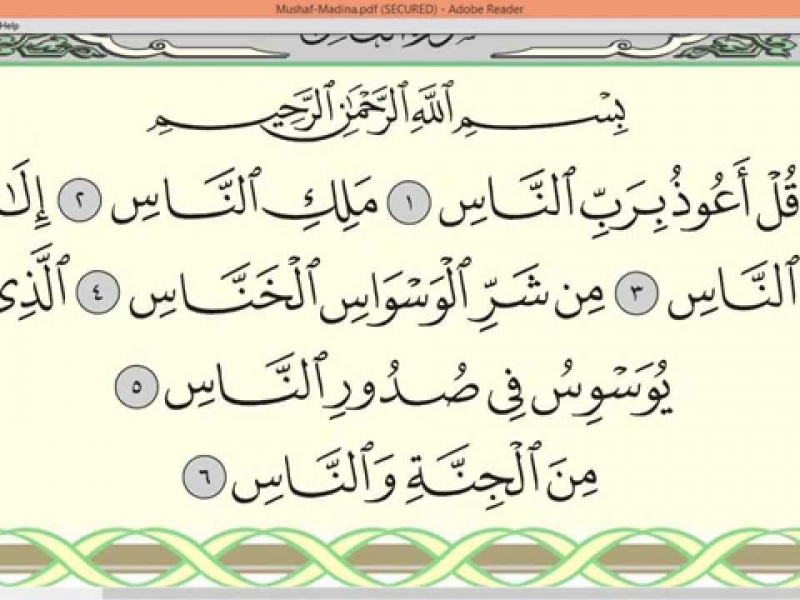 Mushaf-Madina.pdf (SECURED) - Adobe Reader
Help
بِسْمِ ٱللَّهِ ٱلرَّحْمَٰنِ ٱلرَّحِيمِ
قُلْ أَعُوذُ بِرَبِّ ٱلنَّاسِ ١ مَلِكِ ٱلنَّاسِ ٢
ٱلنَّاسِ ٣ مِن شَرِّ ٱلْوَسْوَاسِ ٱلْخَنَّاسِ ٤ ٱلَّذِى
يُوَسْوِسُ فِى صُدُورِ ٱلنَّاسِ ٥
مِنَ ٱلْجِنَّةِ وَٱلنَّاسِ ٦